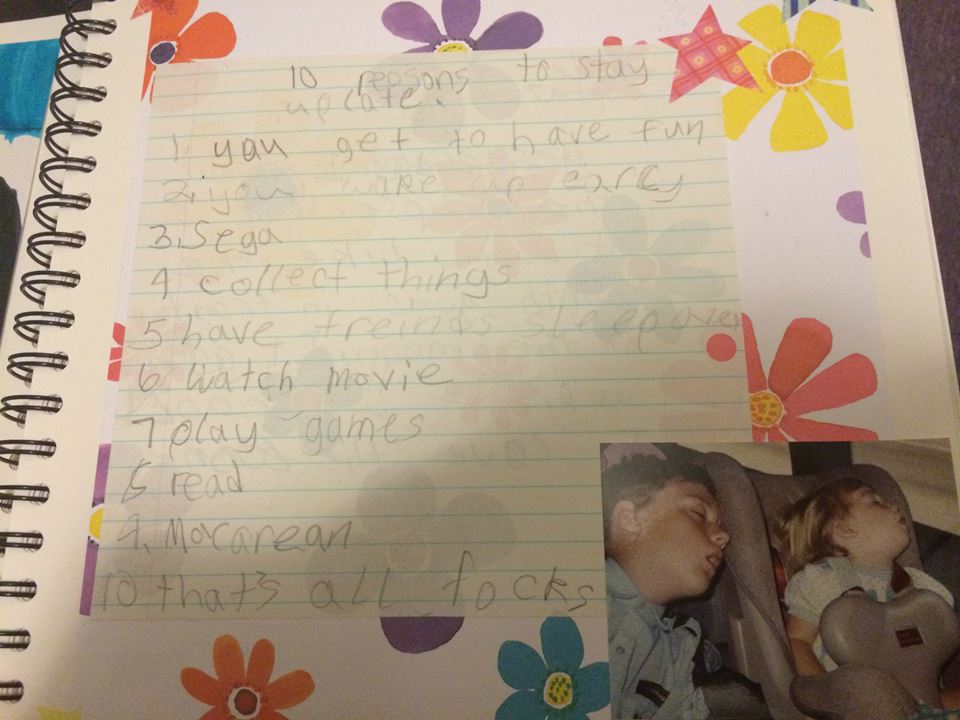 10 reasons to stay
up late.
1 you get to have fun
2. you wake up exrly
3. Sega
4 collect things
5 have freinds sleepover
6 Watch movie
7 play games
8 read
9. Macarean
10 that's all focks